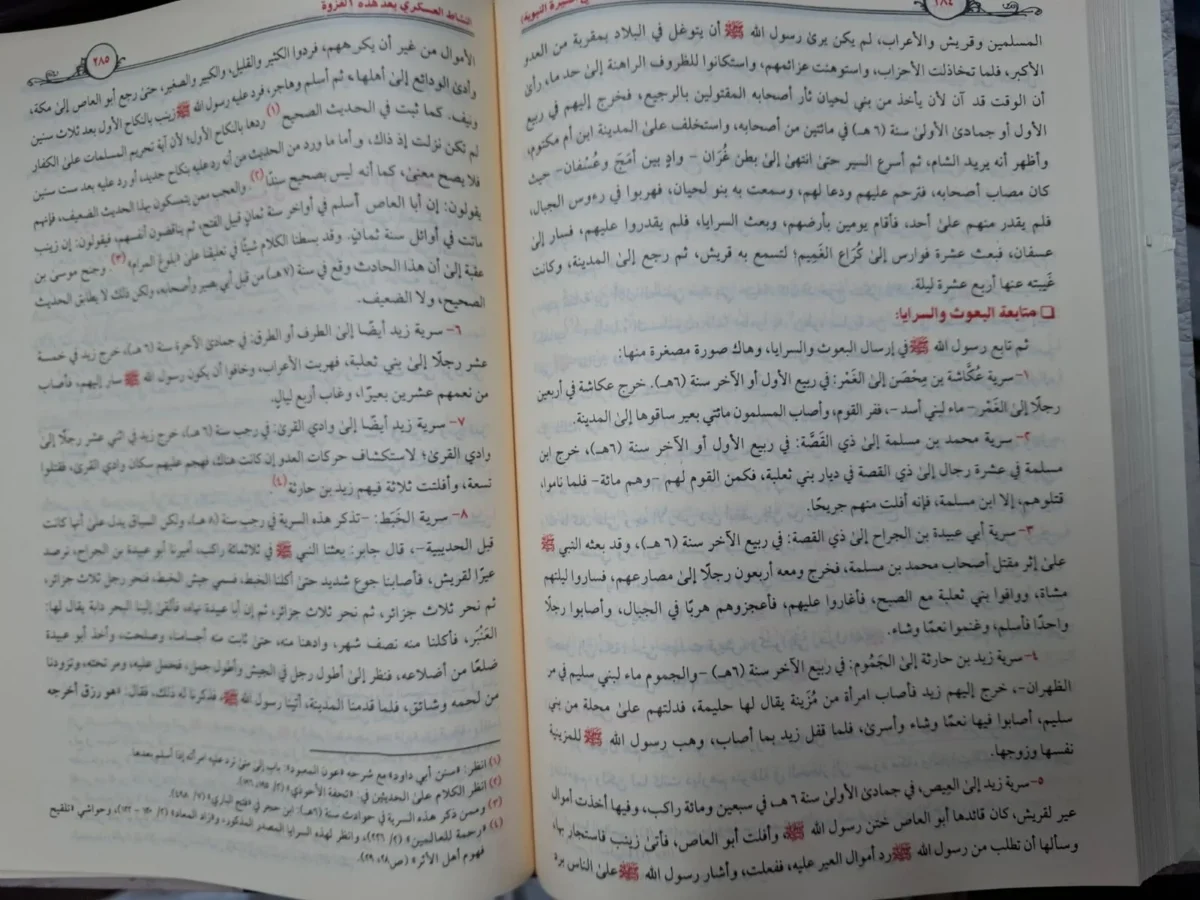 ٢٨٤
المسلمين وقريش والأعراب، لم يكن يرى رسول الله ﷺ أن يتوغل في البلاد بمقربة من العدو
الأكبر، فلما تخاذلت الأحزاب، واستوهنت عزائمهم، واستكانوا للظروف الراهنة إلى حد ما، رأى
أن الوقت قد آن لأن يأخذ من بني لحيان ثأر أصحابه المقتولين بالرجيع، فخرج إليهم في ربيع
الأول أو جمادى الأولى سنة (٦هـ) في مائتين من أصحابه، واستخلف على المدينة ابن أم مكتوم،
وأظهر أنه يريد الشام، ثم أسرع السير حتى انتهى إلى بطن غُرَان - وادٍ بين أمَجَ وعُسْفان- حيث
كان مصاب أصحابه، فترحم عليهم ودعا لهم، وسمعت به بنو لحيان، فهربوا في رءوس الجبال،
فلم يقدر منهم على أحد، فأقام يومين بأرضهم، وبعث السرايا، فلم يقدروا عليهم، فسار إلى
عسفان، فبعث عشرة فوارس إلى كُرَاع الغَمِيم؛ لتسمع به قريش، ثم رجع إلى المدينة، وكانت
غَيبته عنها أربع عشرة ليلة.
❑ متابعة البعوث والسرايا:
ثم تابع رسول الله ﷺ في إرسال البعوث والسرايا، وهاك صورة مصغرة منها:
١- سرية عُكَّاشة بن مِحْصَن إلى الغَمْر: في ربيع الأول أو الآخر سنة (٦هـ). خرج عكاشة في أربعين
رجلًا إلى الغَمْر - ماء لبني أسد-، ففر القوم، وأصاب المسلمون مائتي بعير ساقوها إلى المدينة.
٢- سرية محمد بن مسلمة إلى ذي القَصَّة: في ربيع الأول أو الآخر سنة (٦هـ)، خرج ابن
مسلمة في عشرة رجال إلى ذي القصة في ديار بني ثعلبة، فكمن القوم لهم -وهم مائة- فلما ناموا،
قتلوهم، إلا ابن مسلمة، فإنه أفلت منهم جريحًا.
٣- سرية أبي عبيدة بن الجراح إلى ذي القصة: في ربيع الآخر سنة (٦هـ)، وقد بعثه النبي ﷺ
على إثر مقتل أصحاب محمد بن مسلمة، فخرج ومعه أربعون رجلًا إلى مصارعهم، فساروا ليلتهم
مشاة، ووافوا بني ثعلبة مع الصبح، فأغاروا عليهم، فأعجزوهم هربًا في الجبال، وأصابوا رجلًا
واحدًا فأسلم، وغنموا نعمًا وشاء.
٤- سرية زيد بن حارثة إلى الجَمُوم: في ربيع الآخر سنة (٦هـ) -والجموم ماء لبني سليم في مر
الظهران-، خرج إليهم زيد فأصاب امرأة من مُزَينة يقال لها حليمة، فدلتهم على محلة من بني
سليم، أصابوا فيها نعمًا وشاء وأسرى، فلما قفل زيد بما أصاب، وهب رسول الله ﷺ للمزينية
نفسها وزوجها.
٥- سرية زيد إلى العِيص، في جمادى الأولى سنة ٦ هـ في سبعين ومائة راكب، وفيها أخذت أموال
عير لقريش، كان قائدها أبو العاص ختن رسول الله ﷺ، وأفلت أبو العاص، فأتى زينب فاستجار بها،
وسألها أن تطلب من رسول الله ﷺ رد أموال العير عليه، ففعلت، وأشار رسول الله ﷺ على الناس برد
النشاط العسكري بعد هذه الغزوة
٢٨٥
الأموال من غير أن يكرههم، فردوا الكثير والقليل، والكبير والصغير، حتى رجع أبو العاص إلى مكة،
وأدى الودائع إلى أهلها، ثم أسلم وهاجر، فرد عليه رسول الله ﷺ زينب بالنكاح الأول بعد ثلاث سنين
ونيف، كما ثبت في الحديث الصحيح(١) ردها بالنكاح الأول؛ لأن آية تحريم المسلمات على الكفار
لم تكن نزلت إذ ذاك، وأما ما ورد من الحديث من أنه رد عليه بنكاح جديد، أو رد عليه بعد ست سنين
فلا يصح معنى، كما أنه ليس بصحيح سندًا(٢). والعجب ممن يتمسكون بهذا الحديث الضعيف، فإنهم
يقولون: إن أبا العاص أسلم في أواخر سنة ثمانٍ قبيل الفتح، ثم يناقضون أنفسهم، فيقولون: إن زينب
ماتت في أوائل سنة ثمانٍ. وقد بسطنا الكلام شيئًا في تعليقنا على «بلوغ المرام»(٣). وجنح موسى بن
عقبة إلى أن هذا الحادث وقع في سنة (٧هـ) من قبل أبي بصير وأصحابه، ولكن ذلك لا يطابق الحديث
الصحيح، ولا الضعيف.
٦- سرية زيد أيضًا إلى الطرف أو الطرق: في جمادى الآخرة سنة (٦هـ)، خرج زيد في خمسة
عشر رجلًا إلى بني ثعلبة، فهربت الأعراب، وخافوا أن يكون رسول الله ﷺ سار إليهم، فأصاب
من نعمهم عشرين بعيرًا، وغاب أربع ليالٍ.
٧- سرية زيد أيضًا إلى وادي القرى: في رجب سنة (٦هـ)، خرج زيد في اثني عشر رجلًا إلى
وادي القرى؛ لاستكشاف حركات العدو إن كانت هناك، فهجم عليهم سكان وادي القرى، فقتلوا
تسعة، وأفلتت ثلاثة فيهم زيد بن حارثة(٤)
٨- سرية الخَبَط: -تذكر هذه السرية في رجب سنة (٨هـ)، ولكن السياق يدل على أنها كانت
قبل الحديبية-، قال جابر: بعثنا النبي ﷺ في ثلاثمائة راكب، أميرنا أبو عبيدة بن الجراح، نرصد
عيرًا لقريش، فأصابنا جوع شديد حتى أكلنا الخبط، فسمي جيش الخبط، فنحر رجل ثلاث جزائر،
ثم نحر ثلاث جزائر، ثم نحر ثلاث جزائر، ثم إن أبا عبيدة نهاه، فألقى إلينا البحر دابة يقال لها:
العَنْبَر، فأكلنا منه نصف شهر، وادهنا منه، حتى ثابت منه أجسامنا، وصلحت، وأخذ أبو عبيدة
ضلعًا من أضلاعه، فنظر إلى أطول رجل في الجيش وأطول جمل، فحمل عليه، ومر تحته، وتزودنا
من لحمه وشائق، فلما قدمنا المدينة، أتينا رسول الله ﷺ، فذكرنا له ذلك، فقال: «هو رزق أخرجه
(١) انظر: «سنن أبي داود» مع شرحه «عون المعبود»: باب إلى متى ترد عليه امرأته إذا أسلم بعدها
(٢) انظر الكلام على الحديثين في: «تحفة الأحوذي»
(٤) «رحمة للعالمين» (٢/ ٢٢٦)، وانظر لهذه السرايا المصدر المذكور، و«زاد المعاد» ، وحواشي «تلقيح
فهوم أهل الأثر» (ص٢٨، ٢٩).